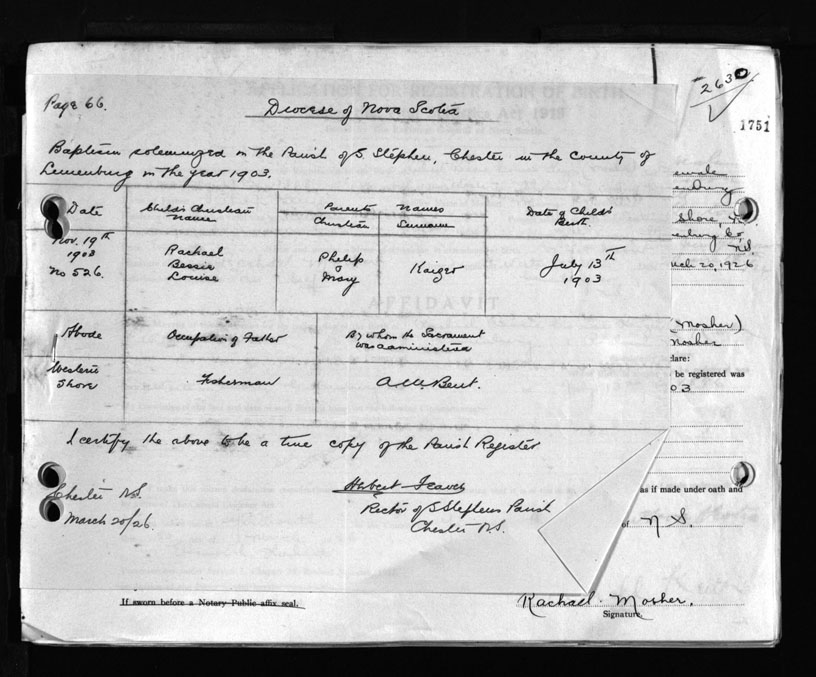 2630
1751
Page 66.
Diocese of Nova Scotia
Baptism solemnized in the Parish of S Stephen, Chester in the County of
Lunenburg in the year 1903.
Date
Child's Christian
Name
Parents Names
Christian
Surname
Date of Child's
Birth.
Nov. 19th
1903
No 526.
Rachael
Bessie
Louise
Philip
&
Mary
Kaizer
July 13th
1903
Abode
Occupation of Father
By whom the Sacrament
was administered
Western
Shore
Fisherman
Bent.
I certify the above to be a true copy of the Parish Register
Chester N.S.
March 20/26.
Herbert
Rector of S Stephens Parish
Chester N.S.
emale
enburg
Shore,
enburg Co,
N.S.
rch 20, 1926
Mosher)
Mosher
lare:
be registered was
03
as if made under oath and
of N.S.
If sworn before a Notary Public affix seal.
Rachael Mosher.
Signature.